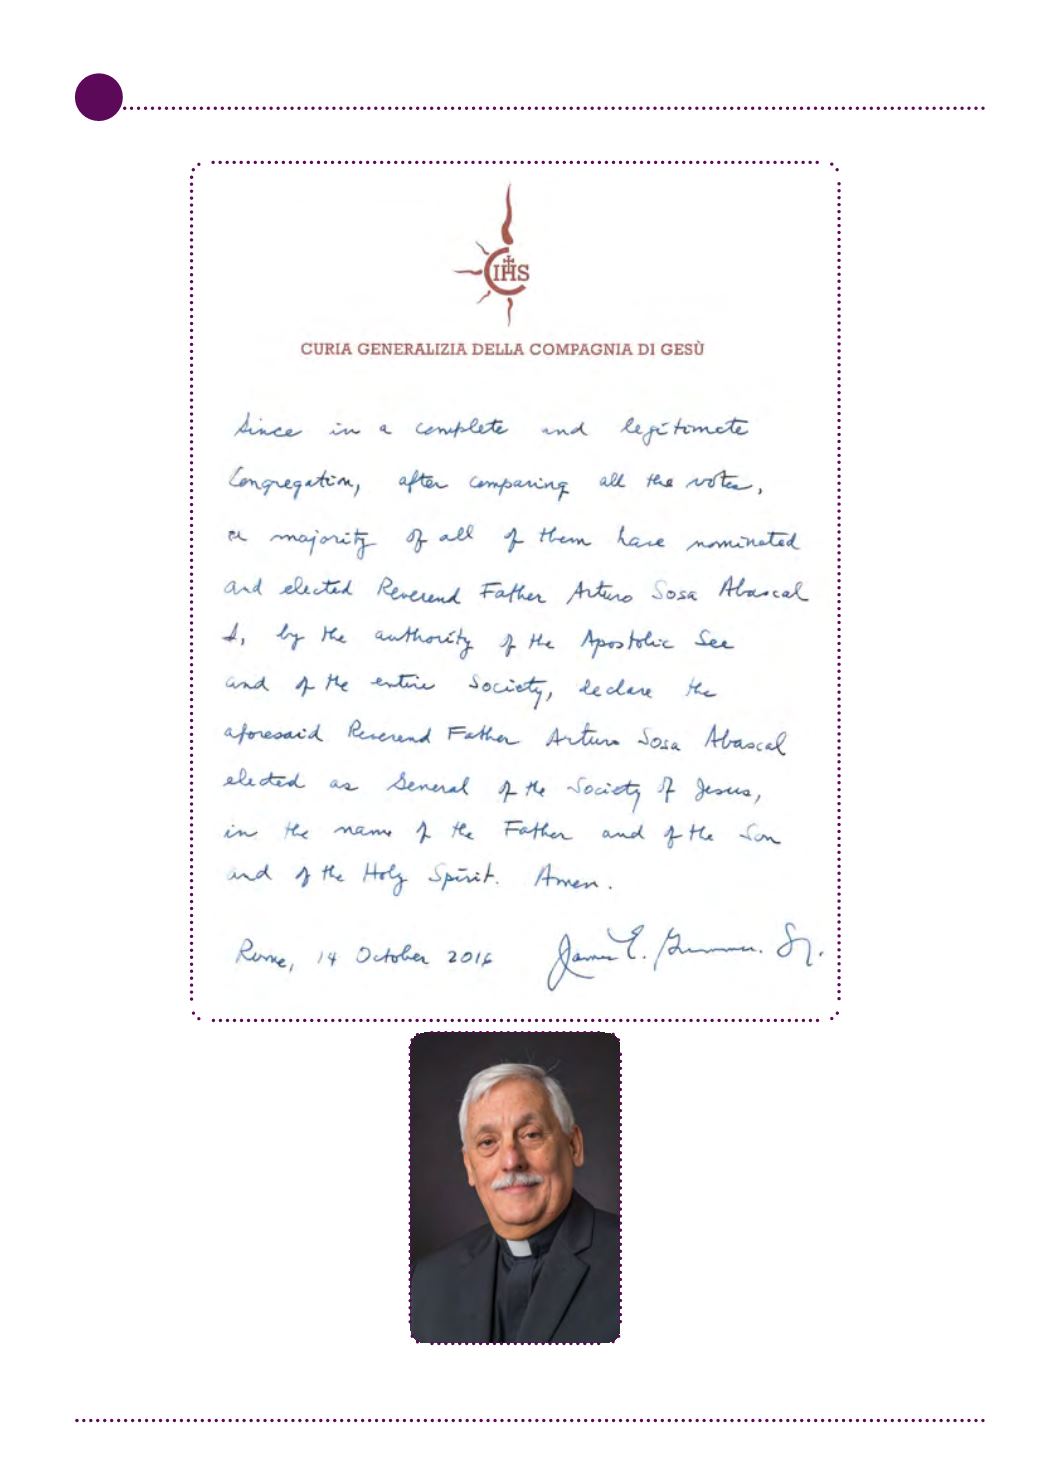 IHS
CURIA GENERALIZIA DELLA COMPAGNIA DI GESÙ
Since in a complete and legitimate
Congregation, after comparing all the votes,
a majority of all of them have nominated
and elected Reverend Father Arturo Sosa Abascal
I, by the authority of the Apostolic See
and of the entire Society, declare the
aforesaid Reverend Father Arturo Sosa Abascal
elected as General of the Society of Jesus,
in the name of the Father and of the Son
and of the Holy Spirit. Amen.
Rome, 14 October 2016 James E.